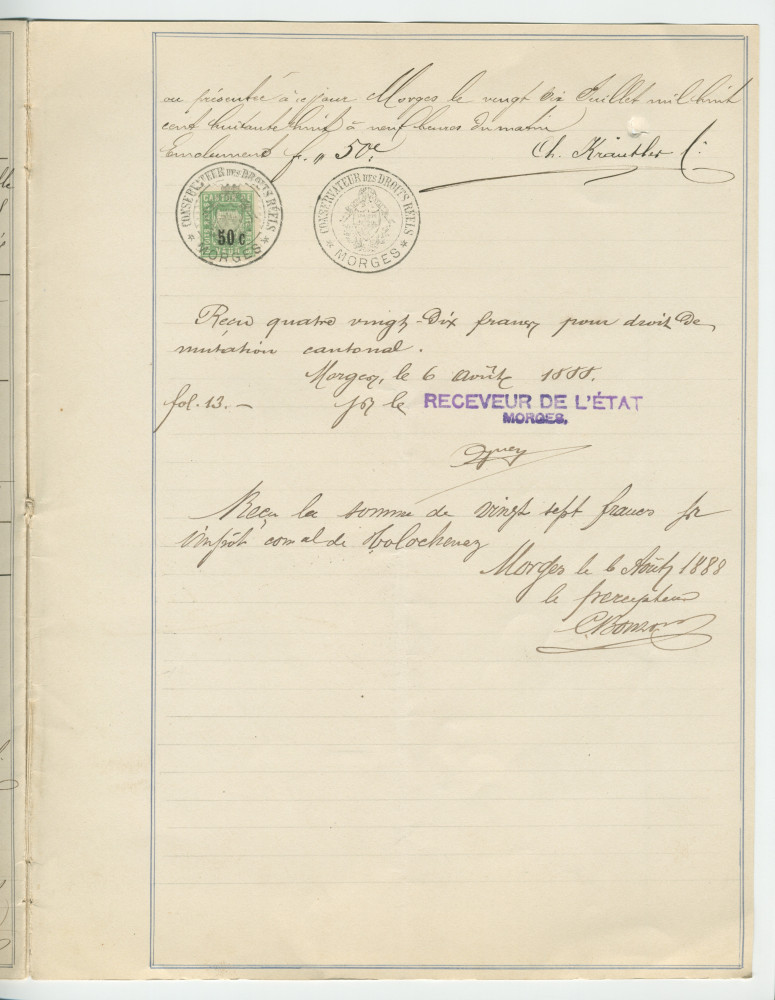 présentée à ce jour Morges le vingt six Juillet mil huit
cent huitante huit à neuf heures du matin
Emolument f. " 50c. Ch. Kräutler
CONSERVATEUR DES DROITS RÉELS
* MORGES *
50 c
CONSERVATEUR DES DROITS RÉELS
* MORGES *
Reçu quatre vingt-dix francs pour droit de
mutation cantonal.
Morges, le 6 Août 1888.
fol. 13. — pr le RECEVEUR DE L'ÉTAT
MORGES,
Reçu la somme de vingt sept francs pr
l'impôt comal de Tolochenaz
Morges le 6 Août 1888
le percepteur